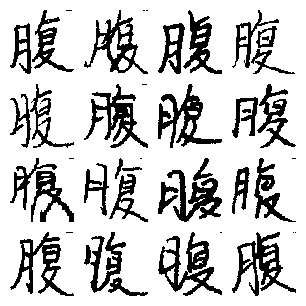 腹腹腹腹
腹腹腹腹
腹腹腹腹
腹腹腹腹